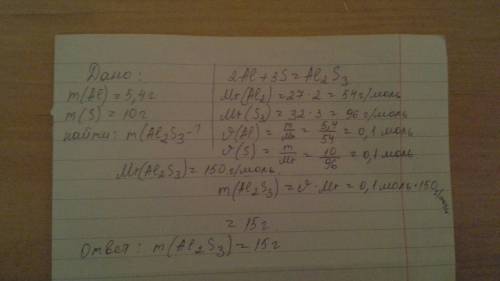 Дано:
m(Al)=5,4г
m(S)=10г
найти: m(Al₂S₃-?
2Al+3S=Al₂S₃
Mr(Al₂)=27·2=54г/моль
Mr(S₃)=32·3=96г/моль
ϑ(Al)=m/Mr=5,4/54=0,1моль
ϑ(S)=m/Mr=10/96=0,1моль
Mr(Al₂S₃)=150г/моль
m(Al₂S₃)=ϑ·Mr=0,1моль·150г/моль
=15г
Ответ: m(Al₂S₃)=15г